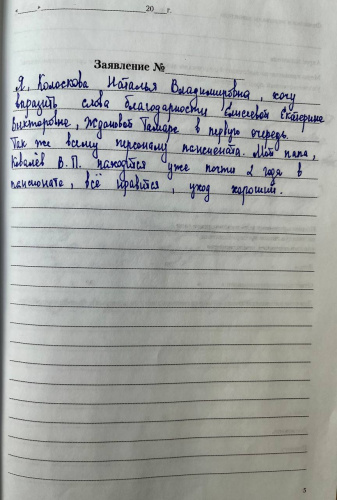 «____» ____________ 20___г.
Заявление №
Я, Колоскова Наталья Владимировна, хочу
выразить слова благодарности Елисеевой Екатерине
Викторовне, Ждановой Тамаре в первую очередь.
Так же всему персоналу пансионата. Мой папа,
Ковалёв В.П. находится уже почти 2 года в
пансионате, всё нравится, уход хороший.
5